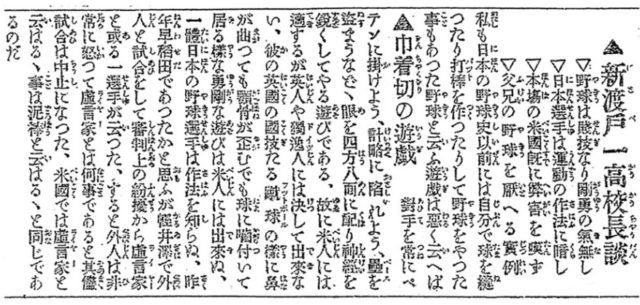 ▲新渡戸一高校長談
▽野球は賤技なり剛勇の氣無し
▽日本選手は運動の作法に暗し
▽本場の米國既に弊害を嘆ず
▽父兄の野球を厭へる實例
私も日本の野球史以前には自分で球を縫
つたり打棒を作つたりして野球をやつた
事もあつた野球と云ふ遊戯は惡く云へば
▲巾着切の遊戯 對手を常にペ
テンに掛けよう、計略に陷れよう、壘を
盗まうなどゝ眼を四方八面に配り神經を
鋭くしてやる遊びである。故に米人には
適するが英人や獨逸人には決して出來な
い。彼の英國の國技たる蹴球の樣に鼻
が曲つても顎骨が歪むでも球に嚙付いて
居る樣な勇剛な遊びは米人には出來ぬ、
一體日本の野球選手は作法を知らぬ、昨
年早稻田であつたかと思ふが輕井澤で外
人と試合をして審判上の紛擾から虛言家
と或る一選手が云つた、すると外人は非
常に怒つて虛言家とは何事であると其儘
試合は中止になつた、米國では虛言家と
云はるゝ事は泥棒と云はるゝと同じであ
るのだ